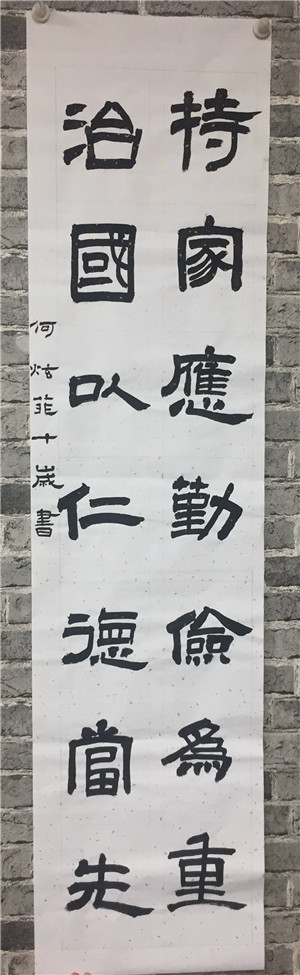 持家應勤儉為重
治國以仁德當先
何炫菲十歲書